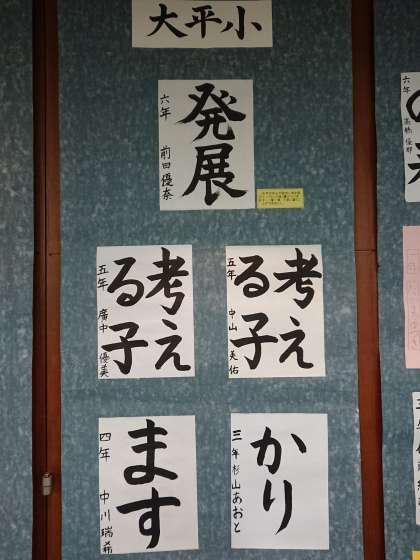 大平小
発展
六年 前田優奈
考え
る子
五年 中山 美佑
考え
る子
五年 廣中 優美
かり
三年 杉山あおと
ます
四年 中川瑞希
六年